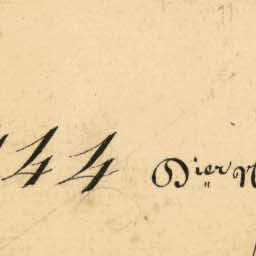 44 Dier